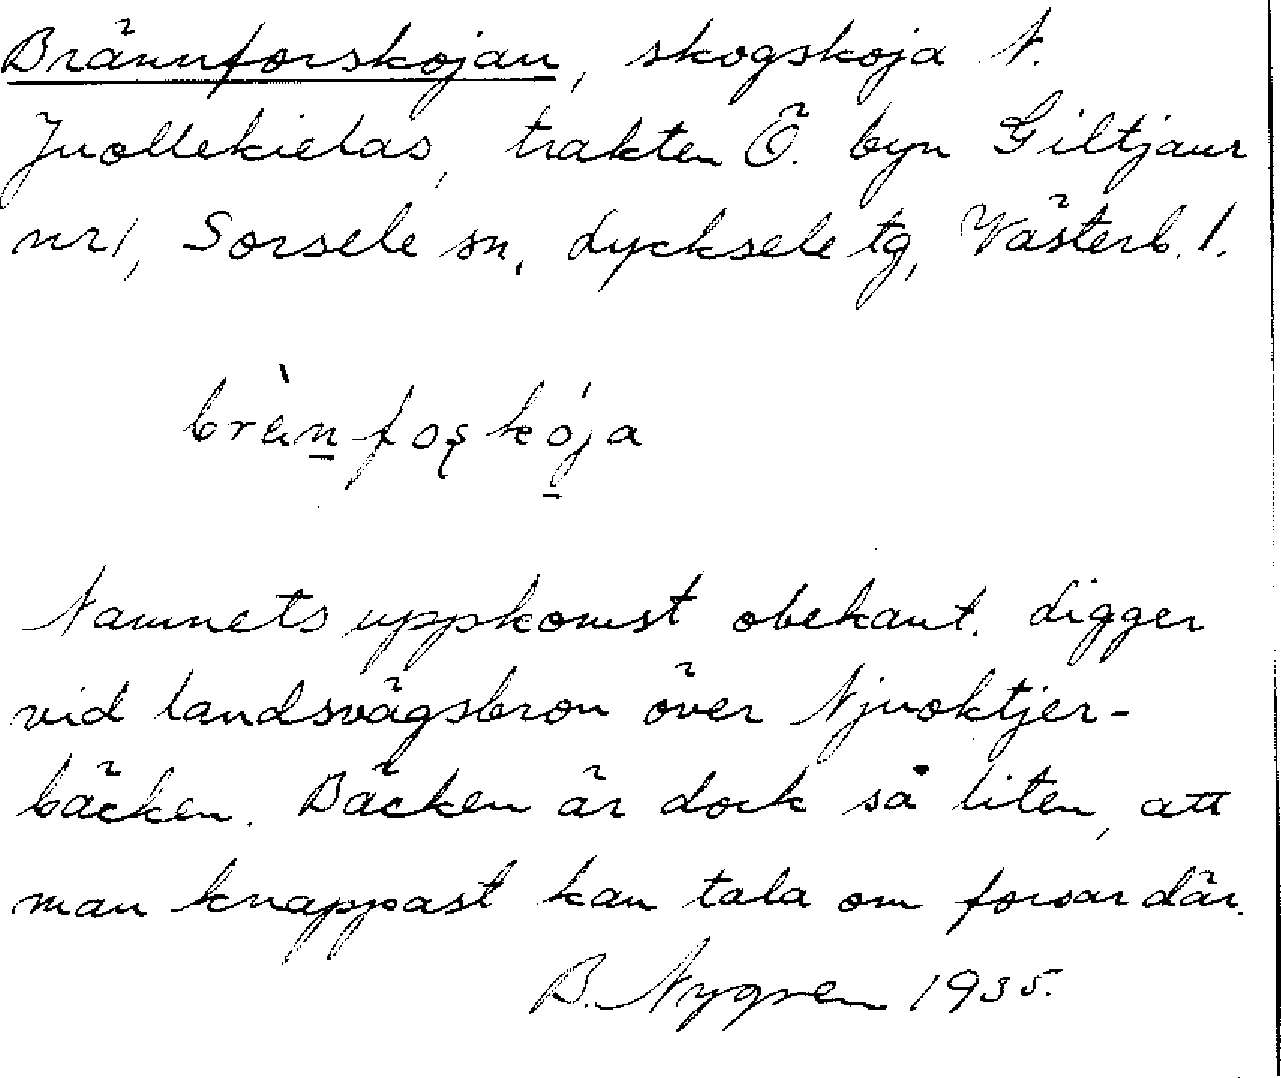 Brännforskojan, skogskoja N.
Juollekielas, trakten Ö. byn Giltjaur
nr 1, Sorsele sn, Lycksele tg, Västerb. l.
brän̲foşko̲ja
Namnets uppkomst obekant. Ligger
vid landsvägsbron över Njuoktjer-
bäcken. Bäcken är dock så liten, att
man knappast kan tala om forsar där.
B. Nygren 1935.